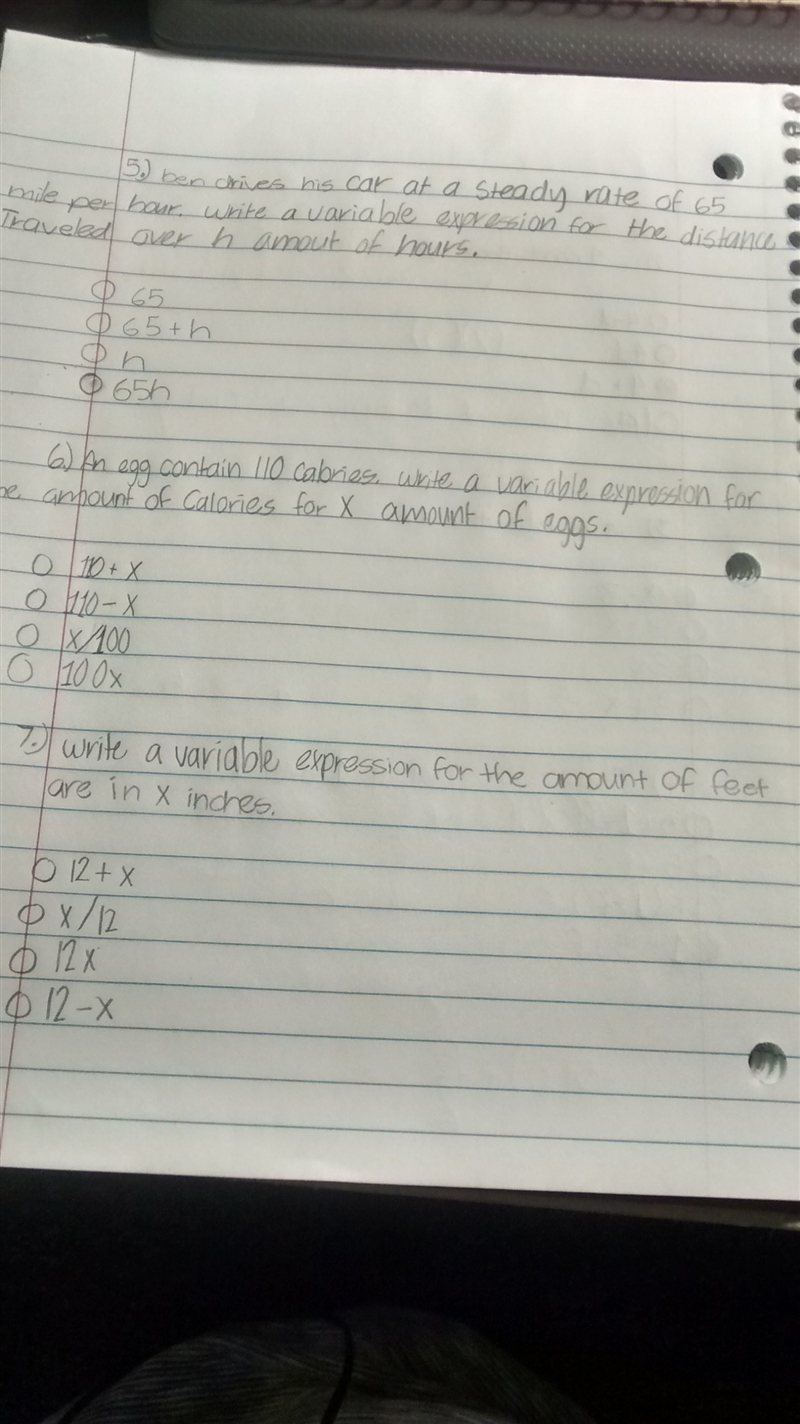 5.) ben drives his car at a steady rate of 65
mile per hour. write a variable expression for the distance
Traveled over h amout of hours.
65
65+h
h
65h
6.) An egg contain 110 calories. write a variable expression for
he amount of Calories for X amount of eggs.
110+ x
110-x
x/100
100x
7.) write a variable expression for the amount of feet
are in x inches.
12+x
x/12
12x
12-x